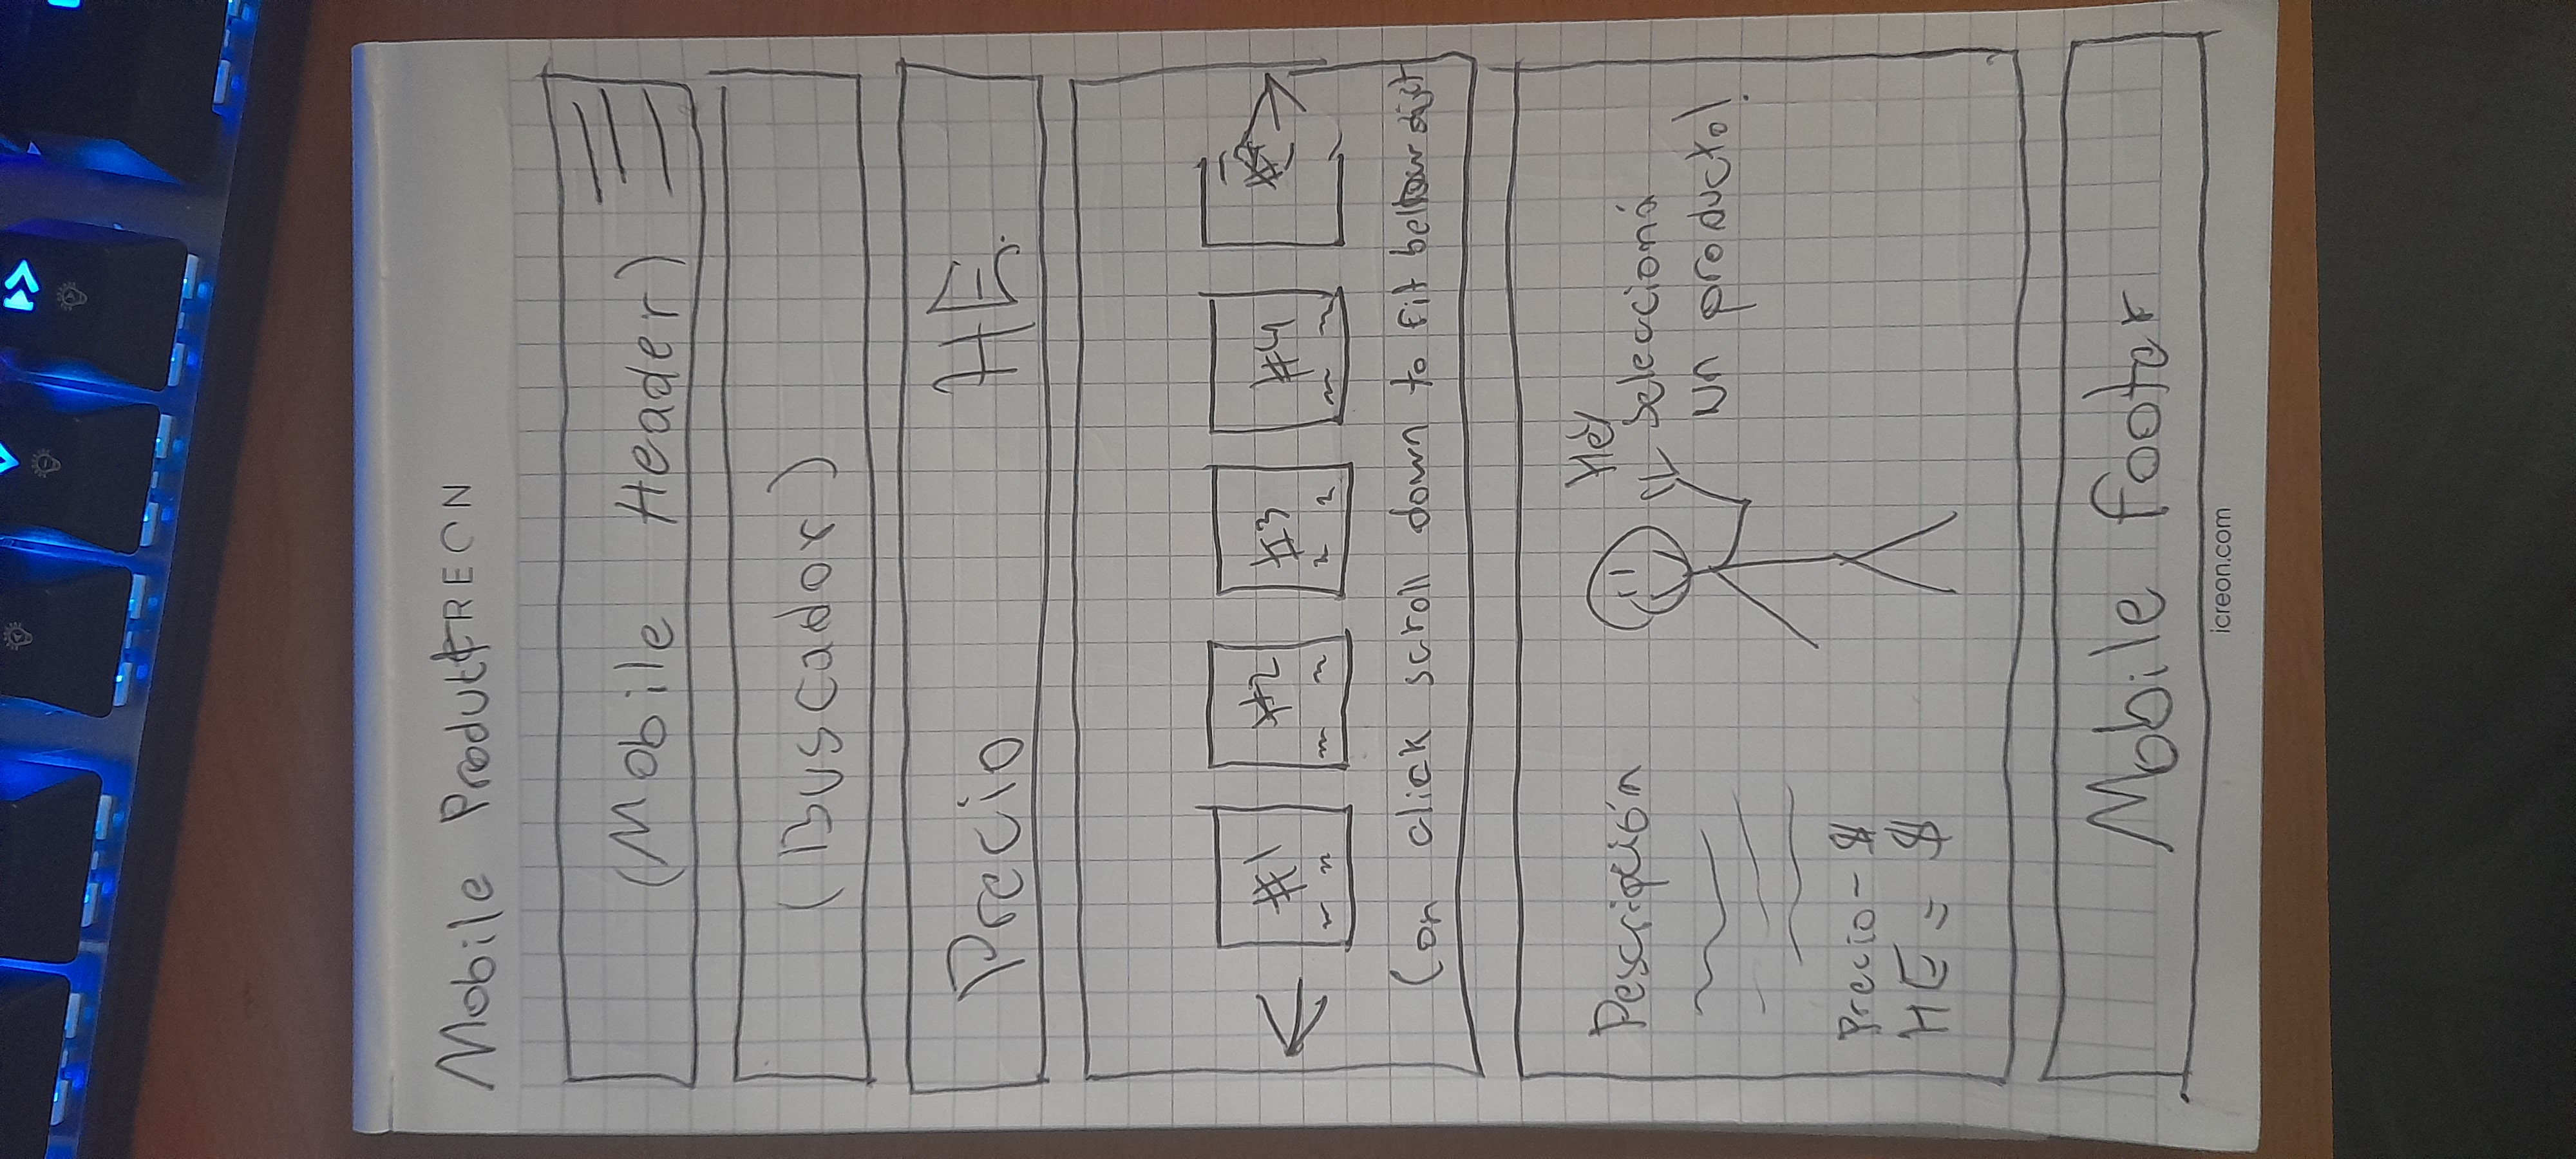 Mobile Product REON
(Mobile Header)
(Buscador)
Precio HE.
#1 #2 #3 #4
(on click scroll down to fit bellow
Descripción
Hey
Seleccioná
un producto!
Precio - $
HE = $
Mobile footer
icreon.com